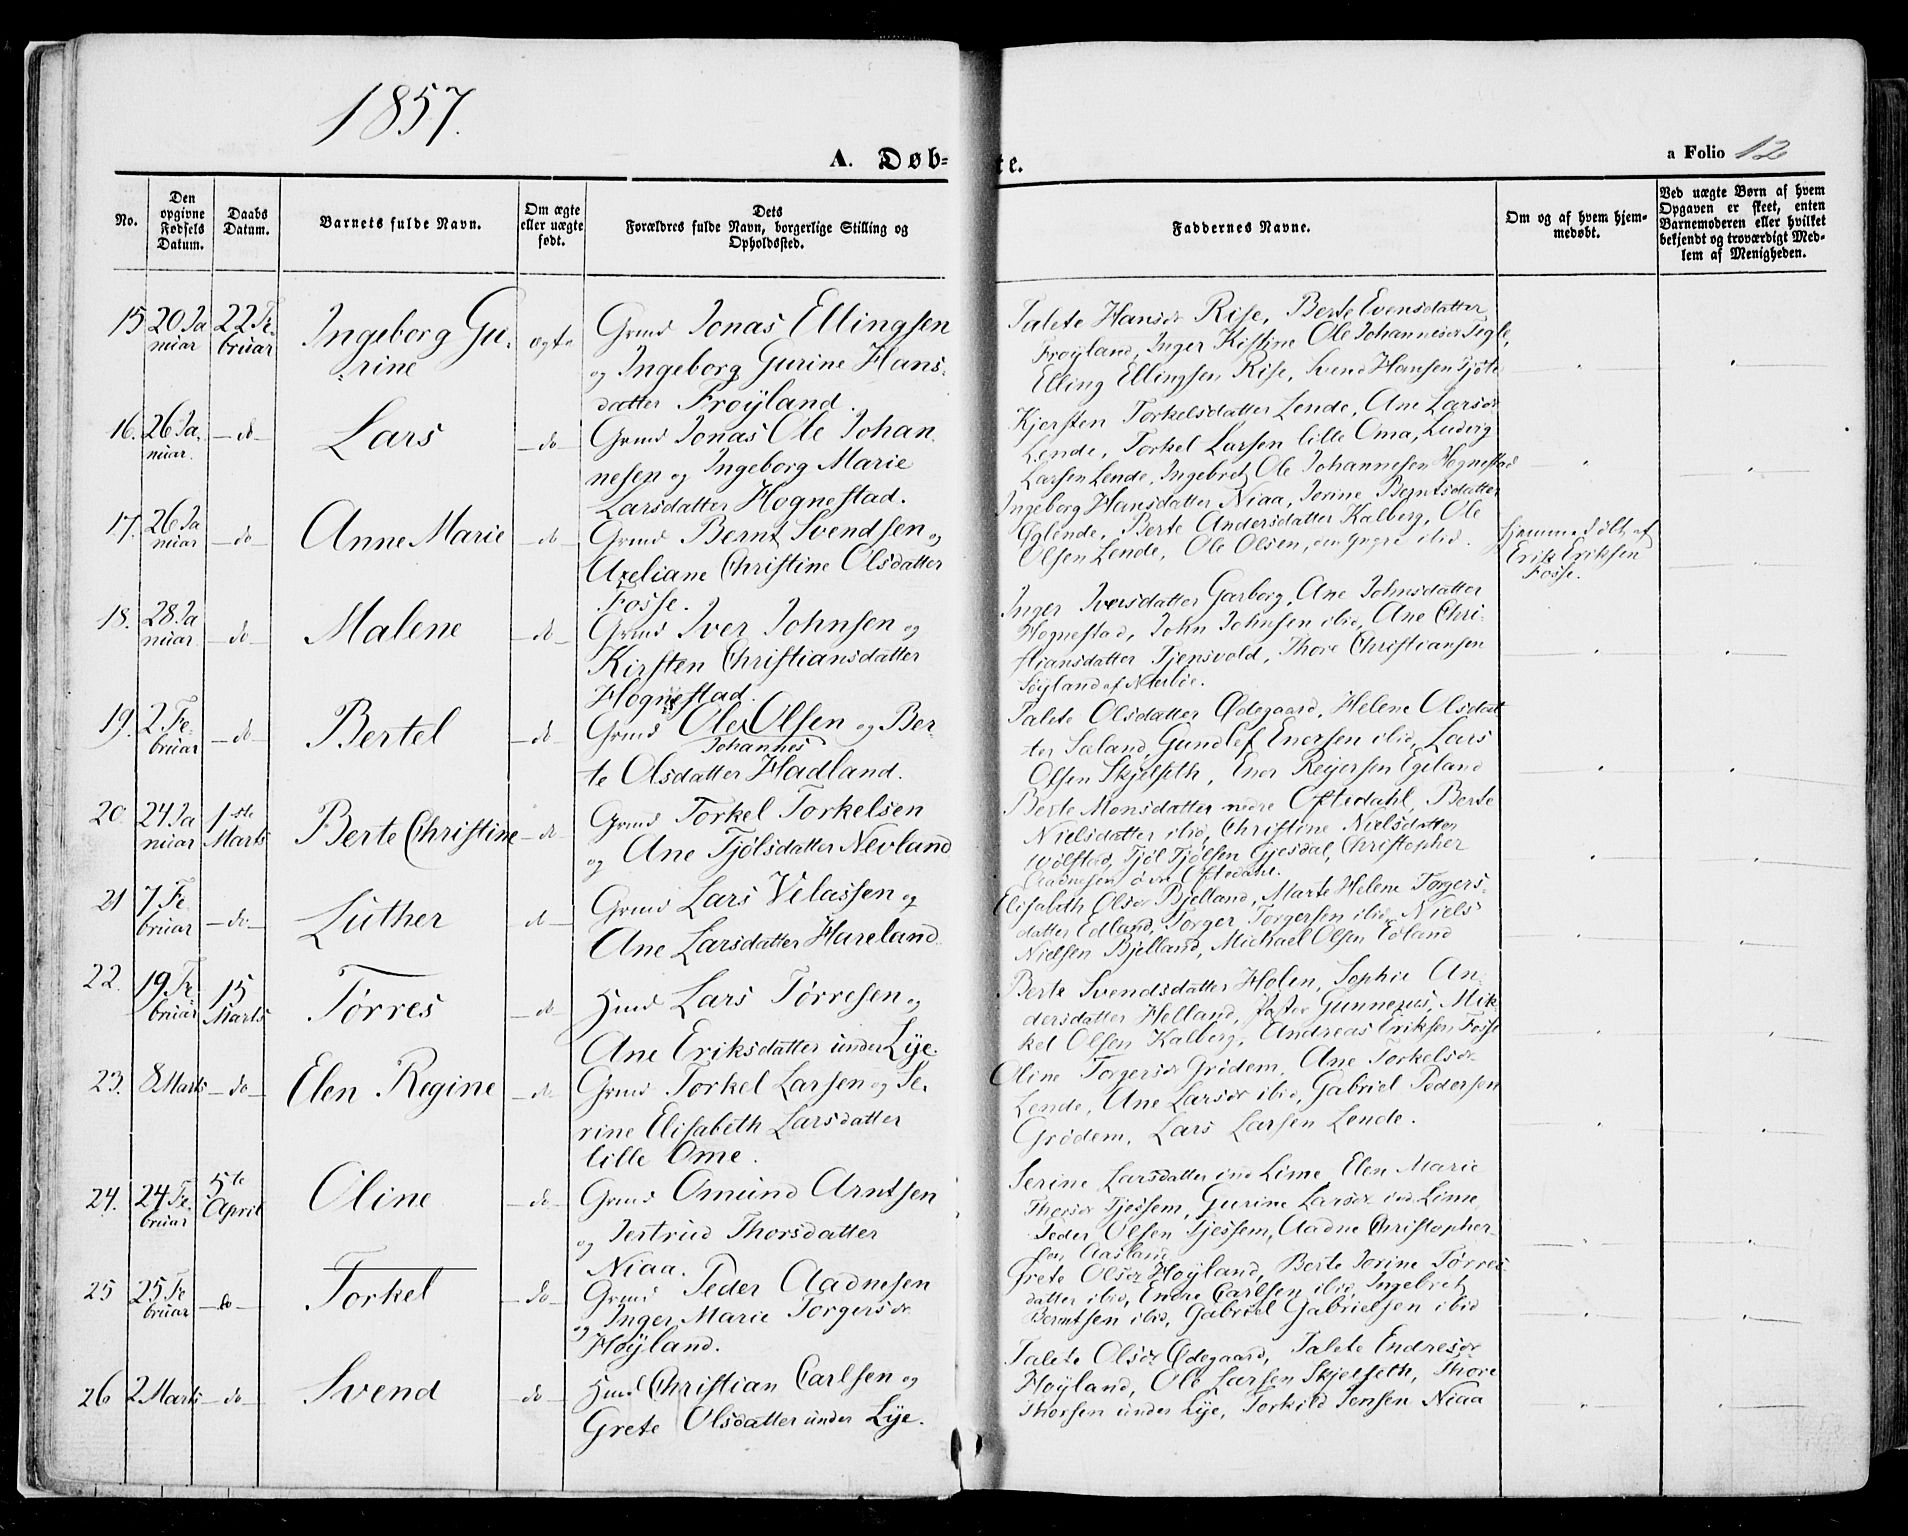 1857.
A. Døb-
te.
a Folio 12
No.
Den opgivne Fødsels Datum.
Daabs Datum.
Barnets fulde Navn.
Om ægte eller uægte født.
Dets Forældres fulde Navn, borgerlige Stilling og Opholdssted.
Faddernes Navne.
Om og af hvem hjem-
medøbt.
Ved uægte Børn af hvem
Opgaven er skeet, enten
Barnemoderen eller hvilket
bekjendt og troværdigt Med-
lem af Menigheden.
15 20 Ja 22 Fe. Ingeborg Gu. ægte Grmd Jonas Ellingsen
nuar bruar rine og Ingeborg Gurine Hans-
datter Frøyland.
Talete Hansdr Rise, Berte Evensdatter
Frøyland, Inger Kistine Ole Johannesdr Tegle,
Elling Ellingsen Rise, Svend Hansen Tjøte
16. 26 Ja. -do- Lars -do- Grmd Jonas Ole Johan
nuar. nesen og Ingeborg Marie
Larsdatter Hognestad.
Kjersten Torkelsdatter Lende, Ane Larsdr
Lende, Torkel Larsen lille Oma, Ludvig
Larsen Lende, Ingebret Ole Johannesen Hognestad
17. 26 Ja -do- Anne Marie -do- Grmd Bernt Svendsen og
nuar Axeliane Christine Olsdatter
Fosse.
Ingeborg Hansdatter Niaa, Jorine Berntsdatter
Berte Andersdatter Kalberg, Ole
Olsen Lende, Ole Olsen, den yngre ibid.
Hjemmedøbt af
Erik Eriksen
Fosse.
18. 28 Ja -do- Malene -do- Grmd Iver Johnsen og
nuar Kirsten Christiansdatter
Hognestad.
Inger Iversdatter Garborg, Ane Johnsdatter
Hognestad, John Johnsen ibid, Ane Chri-
stiansdatter Tjensvold, Thore Christiansen
Søyland af Nærbøe.
19. 2 Fe- -do- Bertel -do- Grmd Ole Olsen og Ber-
bruar Johannes
te Olsdatter Hadland.
Talete Olsdatter Ødegaard, Helene Olsdat
ter Sæland, Gundlef Enersen ibid, Lars
Olsen Skjelseth, Ener Reijersen Egeland
20 24 Ja 1ste Berte Christine -do- Grmd Torkel Torkelsen
nuar Marts og Ane Tjølsdatter Nevland
Berte Monsdatter nedre Oftedahl, Berte
Nielsdatter ibid, Christine Nielsdatter
Wølstad, Tjøl Tjølsen Gjesdal, Christopher
Aadnesen øvre Oftedahl.
21 7 Fe -do- Luther do- Grmd Lars Velassen og
bruar Ane Larsdatter Hareland.
Elisabeth Olsdr Bjelland, Marte Helene Torgers-
datter Edland, Torger Torgersen ibid, Niels
Nielsen Bjelland, Michael Olsen Edland
22. 19 Fe. 15 Tørres -do Hmd Lars Tørresen og
bruar Marts Ane Eriksdatter under Lye.
Berte Svendsdatter Holen, Sophie An-
dersdatter Helland, Pastor Gunnerus, Mik-
kel Olsen Kalberg, Andreas Eriksen Fosse
23. 8 Marts -do- Elen Regine -do Grmd Torkel Larsen og Se-
rine Elisabeth Larsdatter
lille Ome.
Oline Torgersdr Grødem, Ane Torkelsdr
Lende, Ane Larsdr ibid, Gabriel Pedersen
Grødem, Lars Larsen Lende.
24. 24 Fe 5te Oline -do- Grmd Omund Arntsen
bruar April og Jertrud Thorsdatter
Niaa.
Serine Larsdatter ind Lime, Elen Marie
Thorsdr Tjessem, Gurine Larsdr ind Lime,
Peder Olsen Tjessem, Aadne Christopher-
sen Aasland
25 25 Fe -do- Torkel -do- Grmd Peder Aadnesen
bruar og Inger Marie Torgersdr
Høyland.
Grete Olsdr Høyland, Berte Jorine Tørres
datter ibid, Endre Carlsen ibid, Ingebret
Berntsen ibid, Gabriel Gabrielsen ibid
26 2 Marts -do- Svend -do- Hmd Christian Carlsen og
Grete Olsdatter under Lye.
Talete Olsdr Ødegaard, Talete Endresdr
Høyland, Ole Larsen Skjelseth, Thore
Thorsen under Lye, Torkild Jensen Niaa